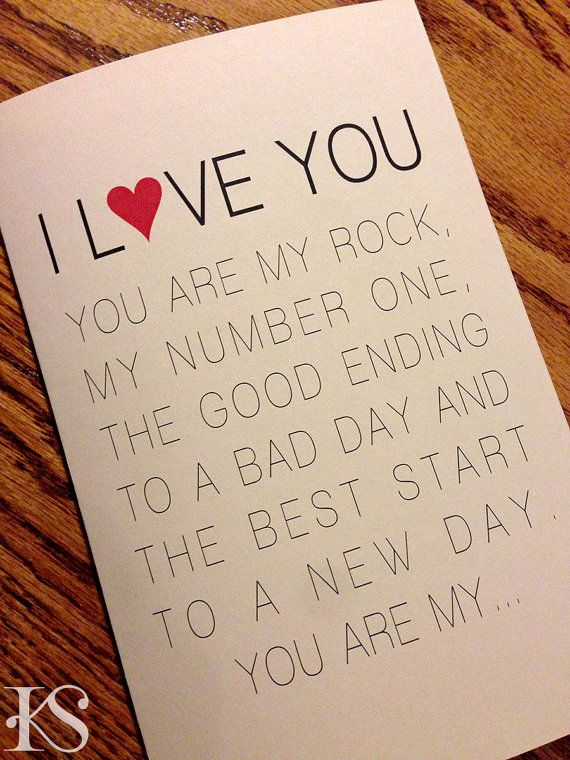 I L♥VE YOU
YOU ARE MY ROCK,
MY NUMBER ONE,
THE GOOD ENDING
TO A BAD DAY AND
THE BEST START
TO A NEW DAY.
YOU ARE MY...
KS